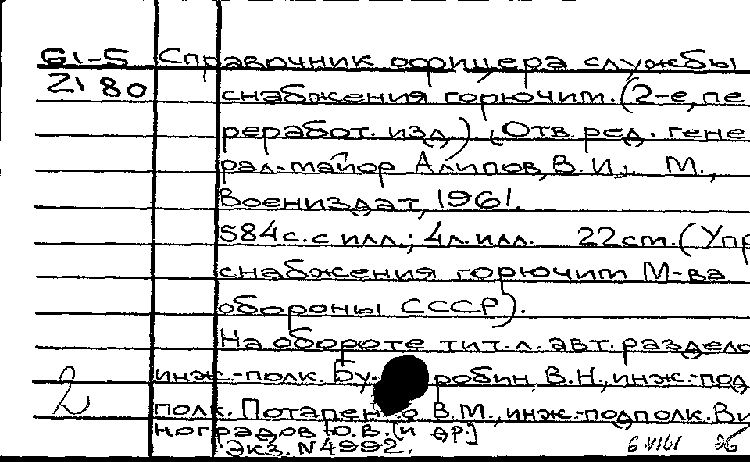 61-5 Справочник офицера службы
2180 снабжения горючим. (2-е, пе
реработ. изд.) (Отв. ред. гене
рал-майор Алипов, В.И.. М.,
Воениздат, 1961.
584с. с илл.; 4л. илл. 22см. (Упр
снабжения горючим М-ва
обороны СССР).
На обороте тит. л. авт. раздело
инж.-полк. робин, В.Н., инж.-под
2 полк. В.М., инж.-подполк. Ви
ноградов Ю.В. [и др.]
Экз. N4992.